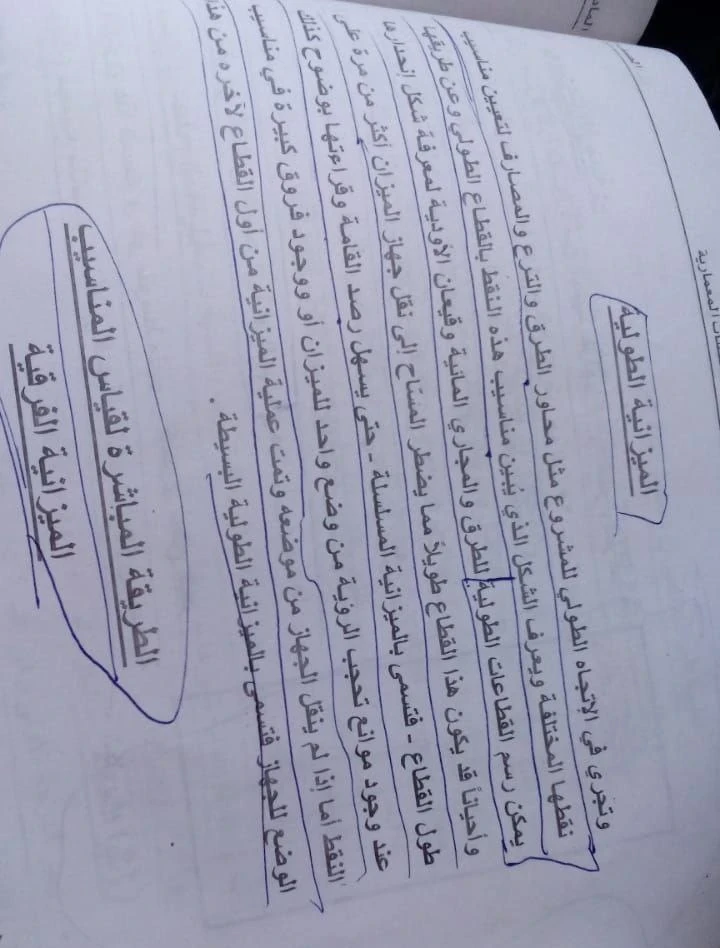 المعمارية
الميزانية الطولية
وتجري في الاتجاه الطولي للمشروع مثل محاور الطرق والترع والمصارف لتعيين مناسيب
نقطها المختلفة ويعرف الشكل الذي يبين مناسيب هذه النقط بالقطاع الطولي وعن طريقها
يمكن رسم القطاعات الطولية للطرق والمجاري المائية وقيعان الأودية لمعرفة شكل إنحدارها
وأحياناً قد يكون هذا القطاع طويلاً مما يضطر المساح إلى نقل جهاز الميزان أكثر من مرة على
طول القطاع - فتسمى بالميزانية المسلسلة - حتى يسهل رصد القامة وقراءتها بوضوح كذلك
عند وجود موانع تحجب الرؤية من وضع واحد للميزان أو ووجود فروق كبيرة في مناسيب
النقط أما إذا لم ينقل الجهاز من موضعه وتمت عملية الميزانية من أول القطاع لآخره من هذا
الوضع للجهاز فتسمى بالميزانية الطولية البسيطة .
الطريقة المباشرة لقياس المناسيب
الميزانية الفرقية